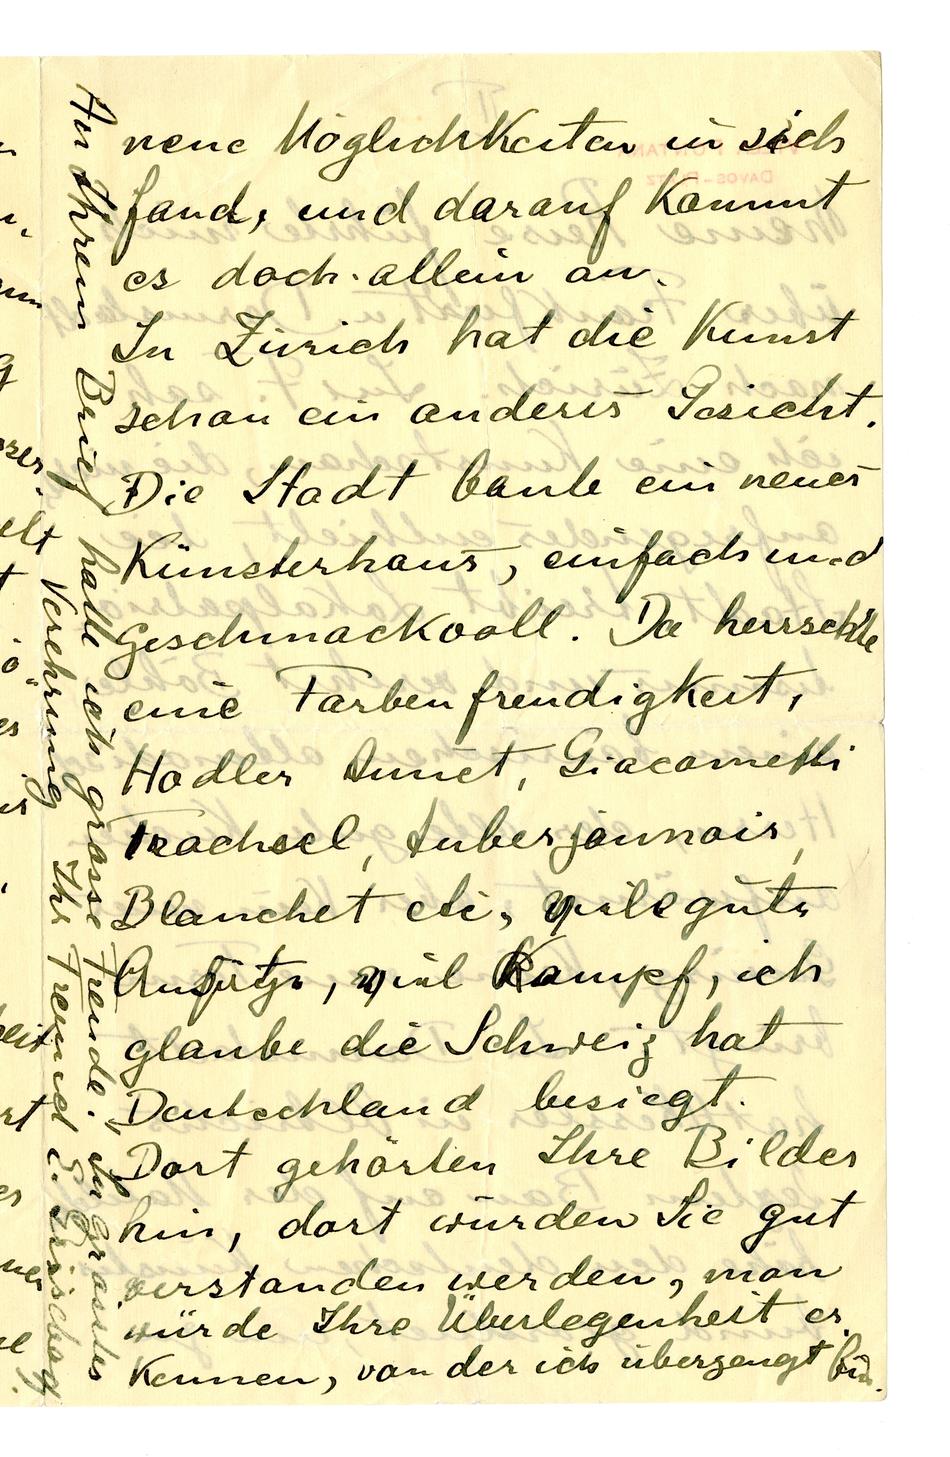 neue Möglichkeiten in sich
fand, und darauf kommt
es doch allein an.
In Zürich hat die Kunst
schon ein anderes Gesicht.
Die Stadt baute ein neues
Künstlerhaus, einfach und
geschmackvoll. Da herrschte
eine Farbenfreudigkeit,
Hodler Amiet, Giacometti
Trachsel, Auberjonnois,
Blanchet etc, viele gute
Ansätze, viel Kampf, ich
glaube die Schweiz hat
Deutschland besiegt.
Dort gehörten Ihre Bilder
hin, dort würden Sie gut
verstanden werden, man
würde Ihre Überlegenheit er
kennen, von der ich überzeugt bin.
An Ihrem Brief hatte ich grosse Freude. In grosster
Verehrung Ihr Freund E.